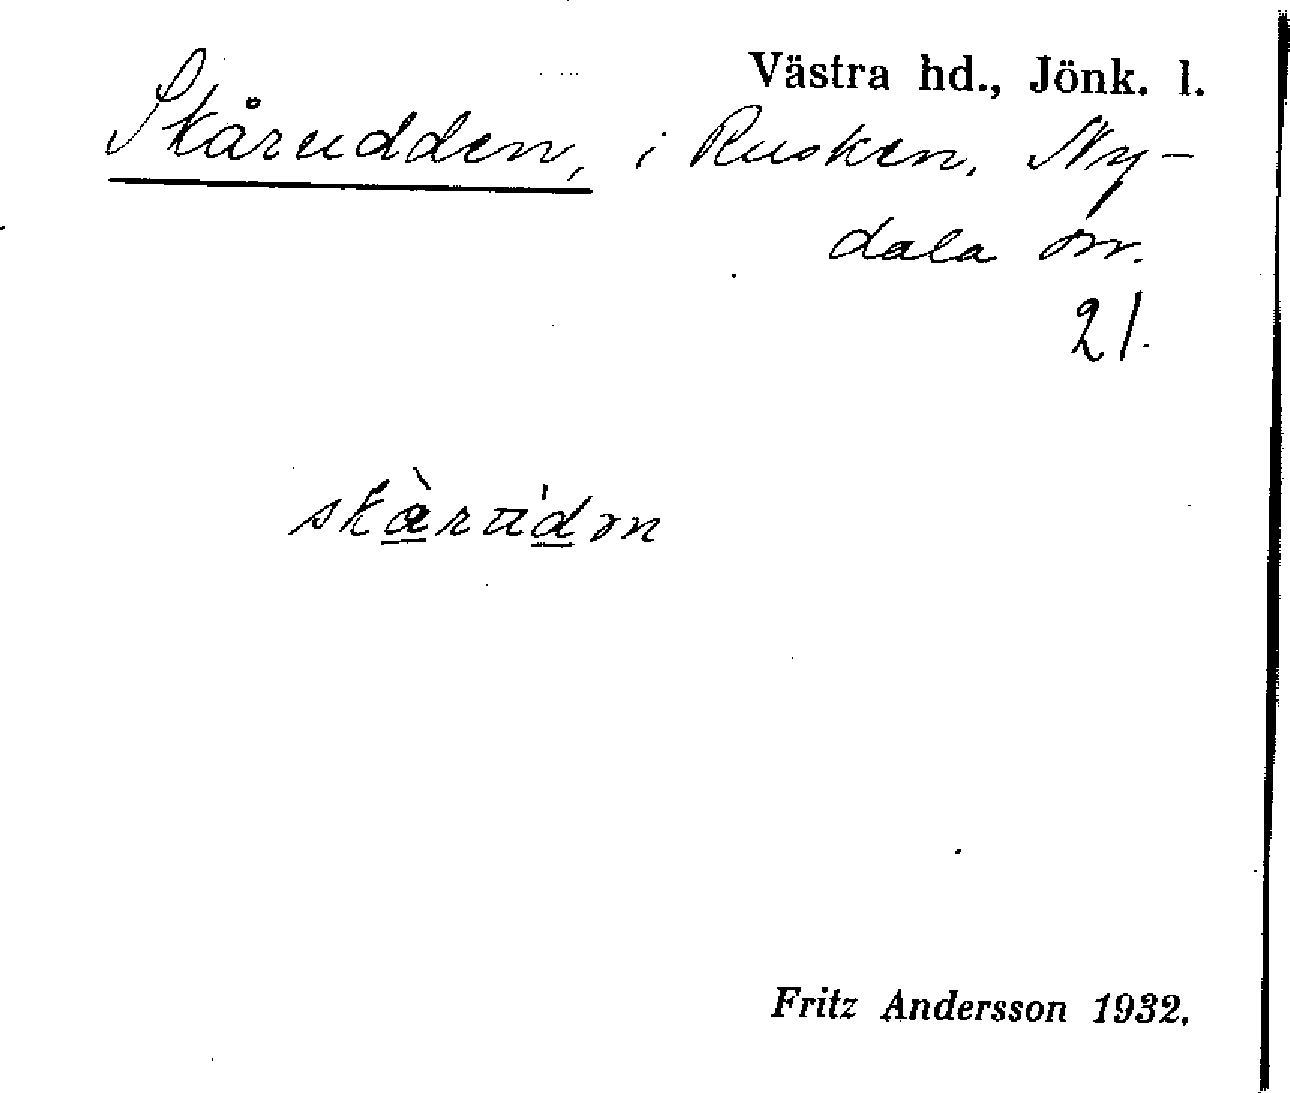 Västra hd., Jönk. l.
Skårudden, i Rusken. Ny-
dala sn.
21.
Fritz Andersson 1932.